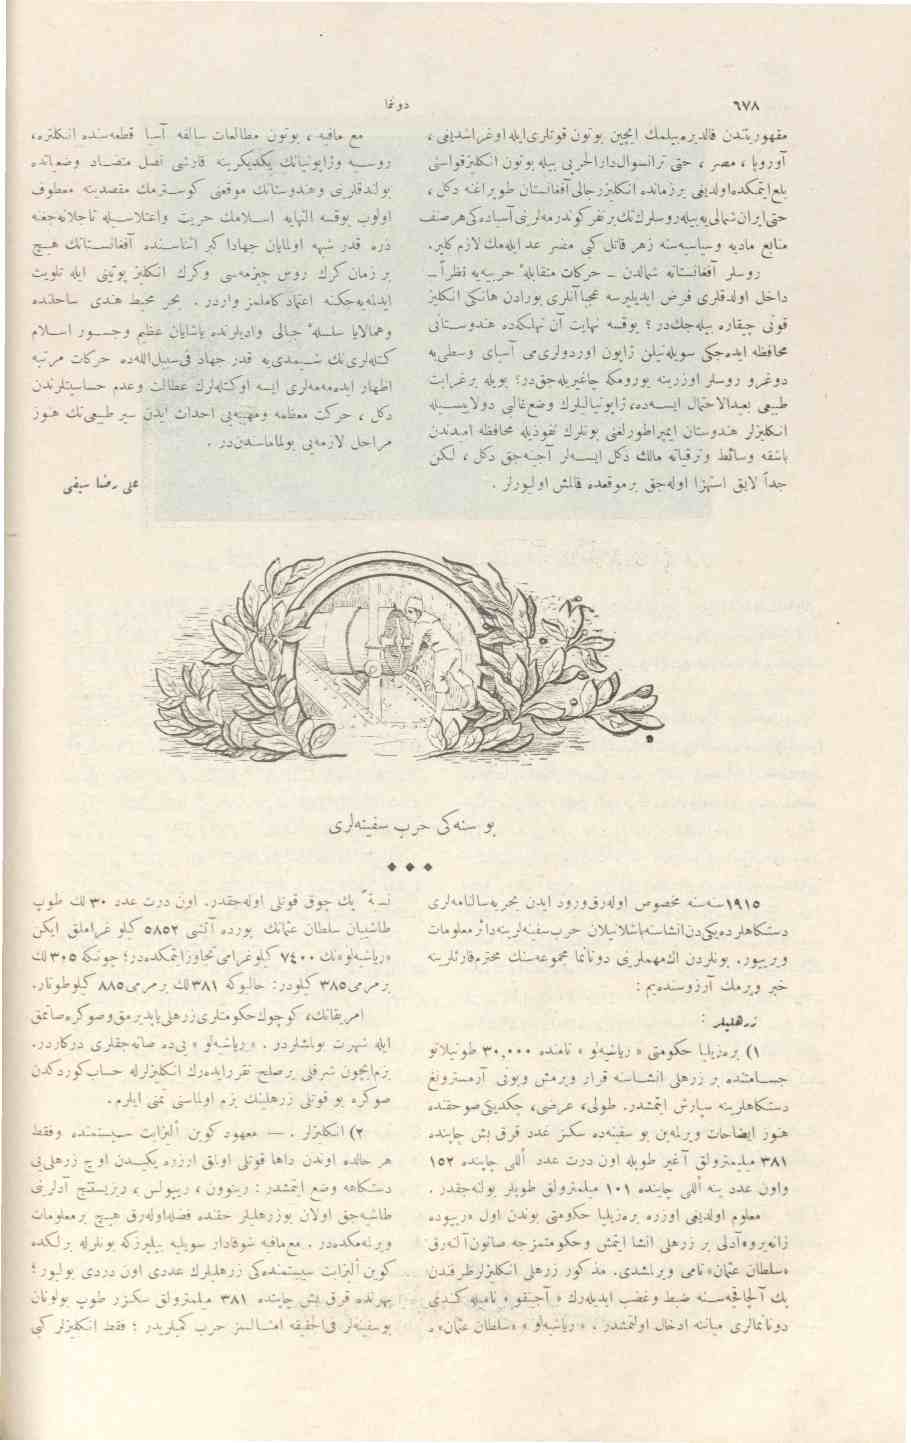 ٦٧٨
دونما
مقهوريتدن قالديره‌بيلمك ايچين بوتون قوتلرى‌ايله اوغراشديغى ،
آوروپا ، مصر ، حتى ترانسوال‌دارالحربى بيله بوتون انكليزقواسنى
بلع‌ايتمكده‌اولديغى برزمانده انكليزرجالى آفغانستان طوپراغنه دكل ،
حتى‌ايران‌شمالى‌يه‌بيله‌روسلرك‌تك‌برنفر كوندرمه‌لرينى آسياده‌كى‌هرصنف
منابع ماديه وسياسيه‌سنه زهر قاتل كبى مضر عد ايله‌مك لازم كلير.
روسلر آفغانستانه شمالدن ـ حركات متقابلهٔ حربيه‌يه نظراً ـ
داخل اولدقلرى فرض ايديليرسه عجبا آنلرى بورادن هانكى انكليز
قوتى چيقاره بيله‌جك‌در ؟ يوقسه نهايت آن تهلكه‌ده هندوستانى
محافظه ايده‌جكى سويله‌نيلن ژاپون اوردولرى‌مى آسياى وسطى‌يه
دوغرو روسلر اوزرينه يورومكه چاغيريله‌جق‌در؛ بويله برغرابت
طبيعى بعيدالاحتمال ايسه‌ده، ژاپونيالولرك وضع‌غالبى دولاييسيله
انكليزلر هندوستان ايمپراطورلغنى بونلرك نفوذيله محافظه اميدندن
باشقه وسائط وترقياته مالك دكل ايسه‌لر آجينه‌جق دكل ، لكن
جداً لايق استهزا اوله‌جق برموقعده قالمش اوليورلر .
مع مافيه ، بوتون مطالعات سالفه آسيا قطعه‌سنده انكلتره،
روسيه وژاپونيانك يكديكرينه قارشى نصل متضاد وضعيانده
بولندقلرينى وهندوستانك موقعنى كوسترمك مقصدينه معطوف
اولوب يوقسه النهايه اسلامك حريت واعتلاسيله تاجلانه‌جغنه
ذره قدر شبهه اولمايان جهادا كبر اثناسنده آفغانستانك هيچ
بر زمان كرك روس چيزمه‌سى وكرك انكليز پوتينى ايله تلويث
ايديله‌ميه‌جكنه اعتمادكاملمز واردر . بحر محيط هندى ساحلنده
وهمالايا سلسلهٔ جبالى واديلرنده ياشايان عظيم وجسور اسلام
كتله‌لرى‌نك شيمدى‌يه قدر جهاد فى‌سبيل‌الله‌ده حركات مرتبه
اظهار ايده‌مه‌مه‌لرى ايسه اوكتله‌لرك عطالت وعدم حساسيتلرندن
دكل ، حركت معظمه ومهيبه‌يى احداث ايدن سير طبيعى‌نك هنوز
مراحل لازمه‌يى بولماماسندن‌در .
على رضا سيفى
بو سنه‌كى حرب سفينه‌لرى
١٩١٥سنه‌سنه مخصوص اوله‌رق‌ورود ايدن بحريه‌سالنامه‌لرى
دستكاهلرده‌يكى‌دن‌انشاسنه‌باشلانيلان حرب‌سفينه‌لرينه‌دائرمعلومات
ويرييور. بونلردن اك‌مهملرينى دونانما مجموعه‌سنك محترم‌قارئلرينه
خبر ويرمك آرزوسنده‌يم :
زرهليلر :
١) بره‌زيليا حكومتى « رياشوئه‌لو » نامنده ٣٠,٠٠٠ طونيلاتو
جسامتنده بر زرهلى انشاسنه قرار ويرمش وبونى آرمسترونغ
دستكاهلرينه سپارش ايتمشدر. طولى، عرضى، چكديكى‌صوحقنده
هنوز ايضاحات ويرلمه‌ين بو سفينه‌ده سكز عدد قرق بش چاپنده
٣٨١ ميليمترولق آغير طوپله اون درت عدد اللى چاپنده ١٥٢
واون عدد ينه اللى چاپنده ١٠١ ميلمترولق طوپلر بولنه‌جقدر .
معلوم اولديغى اوزره بره‌زيليا حكومتى بوندن اول «ريبوده
ژانه‌يرو»آدلى بر زرهلى انشا ايتمش وحكومتمزجه صاتون‌آلنه‌رق
«سلطان عثمان» نامى ويرلمشدى. مذكور زرهلى انكليزلرطرفندن
پك آلچاقجه‌سنه ضبط وغصب ايديله‌رك « آجينقو » ناميله كندى
دونانمالرى مياننه ادخال اولنمشدر. « رياشوئه‌لو » «سلطان عثمان» ه
نسبةً پك چوق قوتلى اوله‌جقدر. اون درت عدد ٣٠ لك طوپ
طاشييان سلطان عثمانك بورده آتشى ٥٨٥٢ كيلو غراملق ايكن
«رياشوئه‌لو»نك ٧٤٠٠ كيلوغرامى‌تجاوزايتمكده‌در؛ چونكه ٣٠٥ لك
برمرمى٣٨٥ كيلودر: حالبوكه ٣٨١لك برمرمى٨٨٥ كيلوطوتار.
امريقانك، كوچوك‌حكومتلرى‌زرهلى‌ياپديرمق‌وصوكره‌صاتمق
ايله شهرت بولمشلردر. « رياشوئه‌لو » يى‌ده صاته‌جقلرى دركاردر.
بزم‌ايچون شرفلى برصلح تقررايده‌رك انكليزلرله حساب‌كوردكدن
صوكره بو قوتلى زرهلينك بزم اولماسنى تمنى ايلرم .
٢) انكليزلر . — معهود كوين اليزابت سيستمنده وفقط
هر حالده اوندن داها قوتلى اولمق اوزره يكيدن اوچ زرهلى‌يى
دستكاهه وضع ايتمشدر : رينوون ، ريپولس ، رزيستنج آدلرينى
طاشيه‌جق اولان بوزرهليلر حقنده فضله‌اوله‌رق هيچ برمعلومات
ويرلمه‌مكده‌در . مع‌مافيه شوقادار سويليه بيليرزكه بونلرله برلكده
كوين اليزابت سيستمنده‌كى زرهليلرك عددى اون دردى بوليور؛
بهرنده قرق بش چاپنده ٣٨١ ميلمترولق سكزر طوپ بولونان
بوسفينه‌لر فى‌الحقيقه امثالسز حرب كميلريدر ؛ فقط انكليزلر كبى